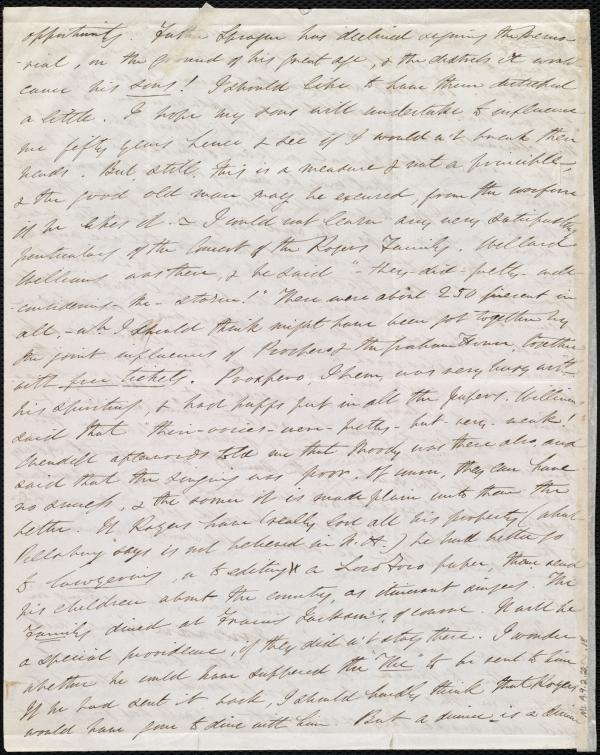 opportunity. Father Sprague has declined signing the Memo-
-rial, on the ground of his great age, & the distress it would
cause his sons! I should like to have them detached
a little. I hope my sons will undertake to influence
me fifty years hence, & see if I would n't break their
heads. But, still, this is a measure & not a principle,
& the good old man may be excused, from the warfare
if he likes it. – I could not learn any very satisfactory
particulars of the Concert of the Rogers Family. Willard
Williams was there, & he said "-they-did-pretty-well-
-considering-the-storm!" There were about 250 present in
all, – wh. I should think might have been got together by
the joint influences of Prospero & the Graham House, together
with free tickets. Prospero, I hear, was very busy with
his spiriting, & had puffs put in all the papers. Williams
said that their-voices-were-pretty-but very-weak!
Wendell afterwards told me that Moody was there also, and
said that the singing was poor. Of course, they can have
no success, & the sooner it is made plain unto them the
better. If Rogers have (really) lost all his property (which
Pillsbury says is not believed in N.H.) he had better go
to lawyering, or to editing a Loco Foco paper, than send
his children about the country, as itinerant singers. The
Family dined at Francis Jackson's, of course. It will be
a special providence, if they did n't stay there. I wonder
whether he could have suffered the "the" to be sent to him
If he had sent it back, I should hardly think that Rogers
would have gone to dine with him. But a dinner is a dinner
Ms. A.9.2.